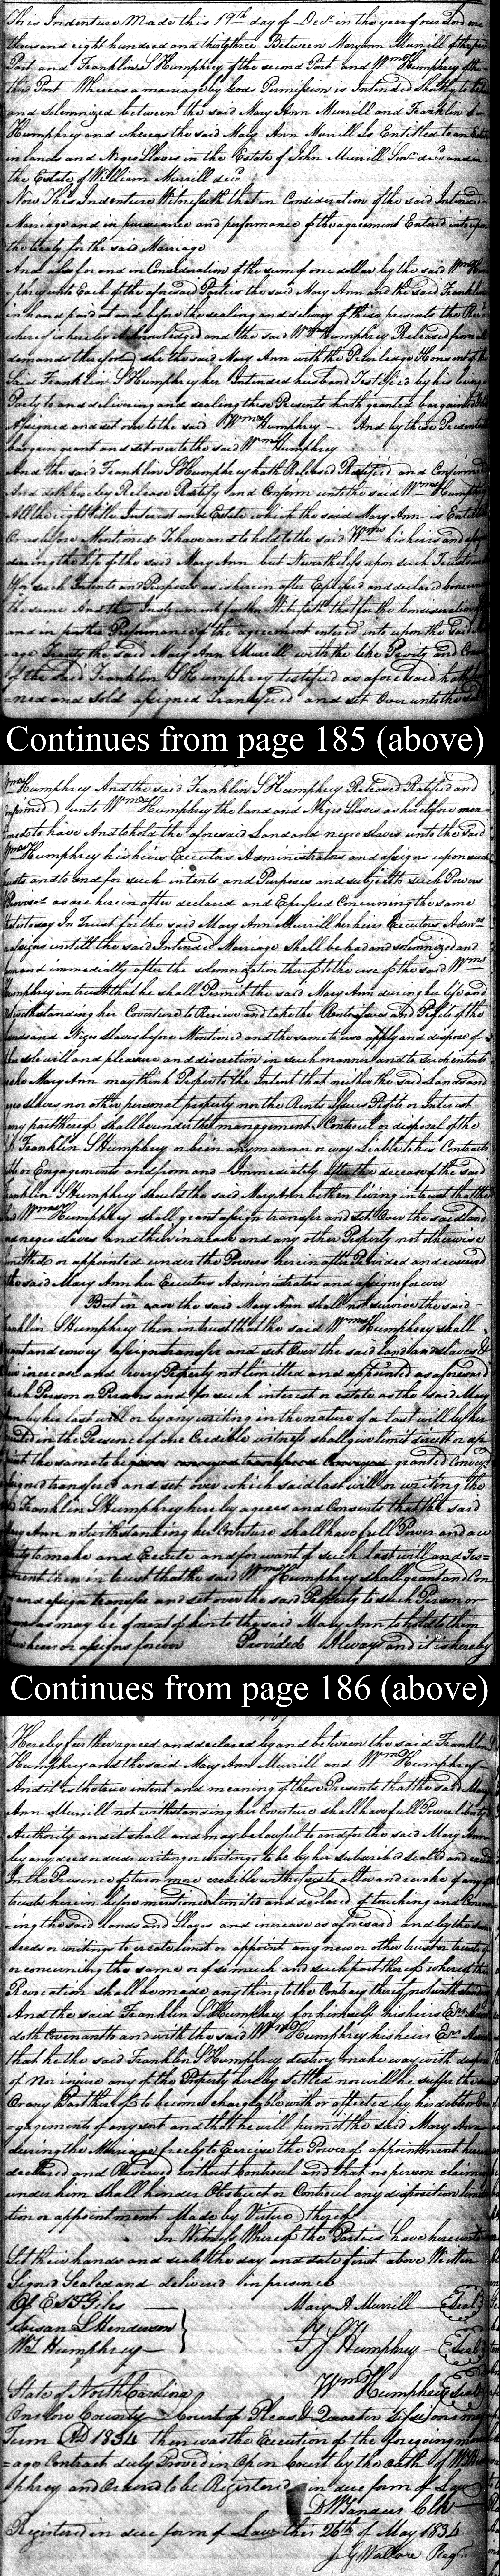 This Indenture Made this 19th day of Decr in the year of our Lord one
thousand eight hundred and thirty three Between Maryann Murrill of the first
Part and Franklin S Humphrey of the second Part and Wm Humphrey of the
third Part Whereas a marriage by Gods Permission is Intended shortly to be had
and Solemnized between the said Mary Ann Murrill and Franklin S
Humphrey and whereas the said Mary Ann Murrill Is Entitled to an Estate
in lands and Negro Slaves in the Estate of John Murrill Senr decd and in
the Estate of William Murrill decd
Now This Indenture Witnesseth that in Consideration of the said Intended
Marriage and in pursuance and performance of the agreement Entered into upon
the treaty for the said Marriage
And also for and in Consideration of the sum of one dollar by the said Wm Hum
=phrey unto Each of the aforesaid Parties the said Mary Ann and the said Franklin
in hand paid at and before the sealing and delivery of these presents the Rect
whereof is hereby Acknowledged and the said Wm Humphrey Released from all
demands therefore she the said Mary Ann with the Priviledge & Consent of the
Said Franklin S Humphrey her Intended husband Testified by his being
Party to and delivering and sealing these Presents hath granted bargained
Assigned and set over to the said Wm Humphrey - And by these Presents
bargain grant and set over to the said Wm Humphrey
And the said Franklin S Humphrey hath Released Ratified and Confirmed
And doth hereby Release Ratify and Confirm unto the said Wm Humphrey
All the right title Interest and Estate which the said Mary Ann is Entitled
Or as before Mentioned To have and to hold to the said Wm his heirs and assigns
during the life of the said Mary Ann but Nevertheless upon such Trusts and
for such Intents and Purposes as is herein after Expressed and declared concerning
the same And this Instrument further Witnesseth that for the Consideration of
and in further Performance of the agreement entered into upon the Said
=age treaty the said Mary Ann Murrill with the like Privity and Consent
of the said Franklin S Humphrey testified as aforesaid hath
=ned and Sold assigned Transfered and set Over unto the said
Continues from page 185 (above)
Wm Humphrey And the said Franklin S Humphrey Released Ratified and
Confirmed unto Wm Humphrey the land and Negro Slaves as heretofore men-
=tioned to have And to hold the aforesaid Land and negro slaves unto the said
Wm Humphrey his heirs Executors Administrators and assigns upon such
trusts and to and for such intents and Purposes and subject to such Powers
Provisoes as are herein after declared and Expressed Concerning the same
that is to say In Trust for the said Mary Ann Murrill her heirs Executors Admrs
& assigns untill the said Intended Marriage shall be had and solemnized and
from and immediately after the solemnization thereof to the use of the said Wm
Humphrey in trust that he shall Permit the said Mary Ann during her life and
notwithstanding her Coverture to Receive and take the Rents Issues and Profits of the
lands and Negro Slaves before Mentioned and the same to use apply and dispose of
at her sole will and pleasure and discretion in such manner and to such intents
as she Mary Ann may think Proper to the Intent that neither the said Lands and
negro slaves nor other personal property nor the Rents Issues Profits or Interest
or any part thereof shall be under the management Controul or disposal of the
sd Franklin S Humphrey or be in any manner or way Liable to his Contracts
debts or Engagements and from and Immediately after the decease of the said
Franklin S Humphrey should the said Mary Ann be then living in trust that the
said Wm Humphrey shall grant assign transfer and set Over the said land
and negro slaves and their increase and any other Property not otherwise
limitted or appointed under the Powers herein after Provided and reserved
to the said Mary Ann her Executors Administrators and assigns forever
But in case the said Mary Ann shall not survive the said
Franklin S Humphrey then in trust that the said Wm Humphrey shall
grant and convey assign transfer and set Over the said land and slaves &
their increase and every Property not limitted and appointed as aforesaid
to such Person or Persons and for such interest or estate as the said Mary
Ann by her last will or by any writing in the nature of a last will by her
executed in the Presence of one Credible witness shall give limit direct or ap
point the same to be given conveyed transfered Conveyed granted Convey
assigned transfered and set over which said last will or writing the
sd Franklin S Humphrey hereby agrees and Consents that the said
Mary Ann notwithstanding her Coverture shall have full Power and au
thority to make and Execute and for want of such last will and Tes=
tament then in trust that the said Wm Humphrey shall grant and Con
vey and assign transfer and set over the said Property to such Person or
Persons as may be of next of kin to the said Mary Ann to hold to them
their heirs or assigns forever Provided Always and it is hereby
Continues from page 186 (above)
Hereby further agreed and declared by and between the said Franklin S
Humphrey and the said Mary Ann Murrill and Wm Humphrey
And it is the true intent and meaning of these Presents that the said Mary
Ann Murrill notwithstanding her Coverture shall have full Power liberty
Authority and it shall and may be lawful to and for the said Mary Ann
by any deed or deeds writing or writings to be by her subscribed Sealed and
In the Presence of two or more credible witnesses to alter and revoke if any of
trusts herein before mentioned limited and declared of touching and Concern
=ing the said lands and Slaves and increase as aforesaid and by the same
deeds or writings to create limit or appoint any new or other trust or trusts of
or concerning the same or of so much and such part thereof whereof the
Revocation shall be made any thing to the Contrary thereof notwithstanding
And the said Franklin S Humphrey for himself his heirs Exrs Admrs
doth Covenant to and with the said Wm Humphrey his heirs Exrs Admrs
that he the said Franklin S Humphrey destroy make way with dispose
of Nor injure any of the Property hereby settled nor will he suffer the same
Or any Part thereof to become chargable with or affected by his debts or En
=gagements of any sort and that he will permit the said Mary Ann
during the Marriage freely to Exercise the Power of appointment herein
declared and Reserved without Controul and that no person claiming
under him Shall hinder Obstruct or Controul any disposition limita
tion or appointment Made by Virtue thereof
In Witness Whereof the Parties have hereunto
Set their hands and seals the day and date first above Written
Signed Sealed and delivered in presence
Of E S F Giles Mary A Murrill Seal
Susan L Henderson
W L Humphrey F S Humphrey Seal
Wm Humphrey Seal
State of North Carolina
Onslow County Court of Pleas & Quarter Sessions May
Term AD 1834 then was the Execution of the foregoing marri
=age Contract duly Proved in Open Court by the oath of W L Hum
phrey and Ordered to be Registered in due form of Law
D W Sanders Clk
Registered in due form of Law this 26th of May 1834
J G Wallace Regr